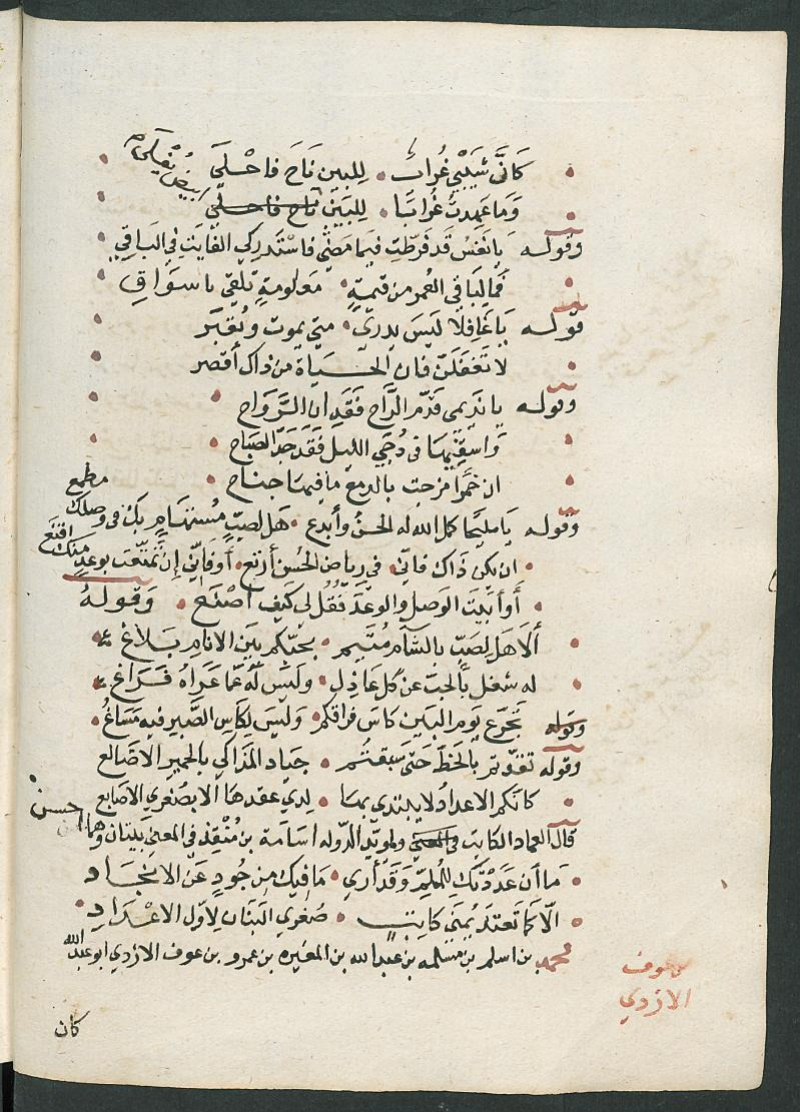 كَأَنَّ شَيْبِي غُراب • للبين نَاحَ فاحْلَى
وَمَا عَهِدتُ غُرابًا • لِلبَيْنِ ناح فاحلى بيضٌ يُفَلَّى
وقوله يا نفس قد فَرّطتِ فيما مَضَى فاسْتَدرِكي الفايتَ في البَاقي
فما لِبَاقي العُمر من قيمةٍ • مَعلومةٍ تُلقى باسواقِ
قوله يَا غافِلًا لَيسَ يدري • متى يموت ويُقبَر
لا تَغفَلَنّ فان الحياة من ذاك أقصر
وقوله يا نديمي قدّم الرَّاح فَقَد آن الرَّوَاح
وَاسقِنِيها في دُجَى الليل فقد جَدّ الصَبَاح
ان خمرا مزجت بالدمع ما فيها جناح
وقوله يَا مليحًا كمل الله له الحسن وأبدع • هَل لِصبٍّ مُستهامٍ بكَ في وصلك مطمع
ان يكن ذَاك فاني • في رياض الحُسن أرتع • أو فإنّي إن تَمتّعت بوعدٍ منك اقنَع
أَو أَبَيْتَ الوَصلَ والوعدَ فقُل لي كيف أصْنَع • وَقوله
أَلَا هَل لِصَبٍّ بالشَآم مُتَيم • بحبّكم بَين الانامِ بَلاغ
له شغل بالحب عن كل عَاذِل • وَليسَ لَه عَمّا عَرَاهُ فَراغ
وقوله تجَرّع يَوم البَين كاس فراقكم • وَلَيْسَ لِكَاس الصَّبر فيه مَسَاغُ
وقوله تقدّمتم بالحَظِّ حَتى سَبقتُم • جياد المَذَاكي بالحمير الاضالع
كانكم الاعداد لا يبتدي بها • لدى عقدها الا بصُغرى الاصابع
قال العماد الكاتب ولمويّد الدّوله اسَامة بن مُنْقِذ في المعنى بيتان وهما احسن
مَا أن عَدَدْتك لِلمُلِمّ وَقد أرى • مَا فيك من جُودٍ عَن الانجَاد
الّا كَما تَعتدّ يُمنَى كاتب • صُغرى البَنان لِأوّل الاعْدَادِ
محمد بن اسلم بن مسلمه بن عبد الله بن المغيره بن عمرو بن عوف الازدي ابو عبد الله
عوف
الازدي
كان